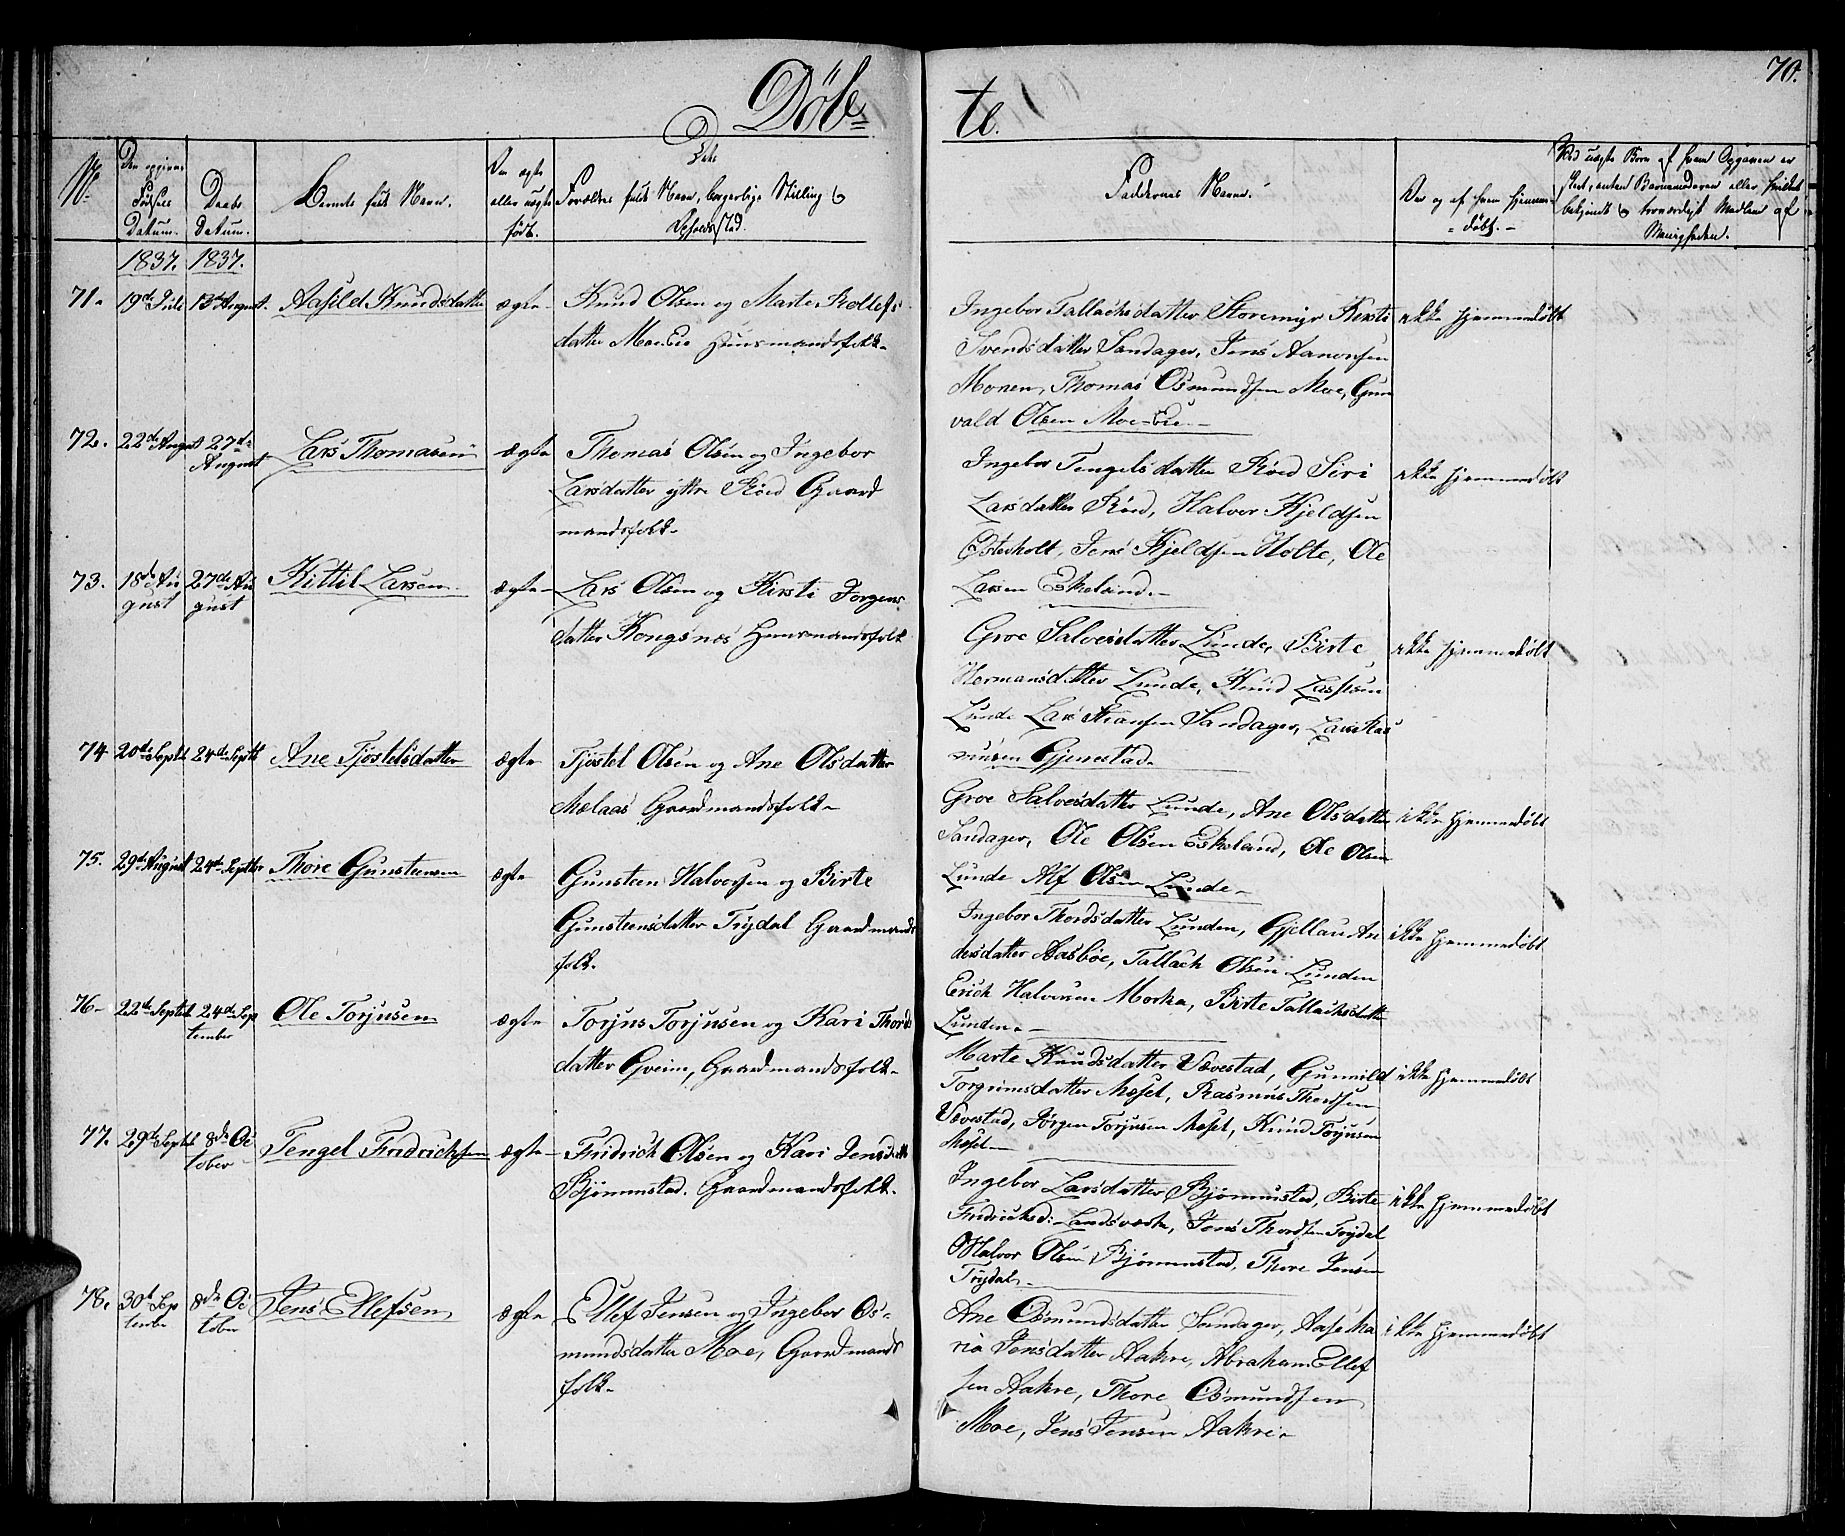 70.
Döbte.
No.
Den opgivne Fødsels Datum.
Daabs Datum.
Barnets fulde Navn.
Om ægte eller uægte født.
Forældres fulde Navn, borgerlige Stilling og Opholdssted.
Faddernes Navne.
Om og af hvem hjemmedöbt.
1837. 1837.
71. 19de Juli 13de August. Aasild Knudsdatter ægte Knud Olsen og Marte Rollefs
datter Moe-Eie Huusmandsfolk
Ingebor Tallachsdatter Storemyr Kirsti
Svendsdatter Sandager, Jens Aanonsen
Monen, Thomas Osmundsen Moe, Gun
vald Olsen Moe-Eie
ikke hjemmedöbt
72. 22de August 27de August Lars Thomasen ægte Thomas Olsen og Ingebor
Larsdatter yttre Röed Gaard
mandsfolk
Ingebor Tengelsdatter Röed Siri
Larsdatter Röed, Halvor Kjeldsen
Österholt, Jens Kjeldsen Holte, Ole
Larsen Eskeland.
ikke hjemmedöbt
73. 18de Au
gust 27de Au
gust Kittil Larsen ægte Lars Olsen og Kirsti Jorgens
datter Kongsnæs Huusmandsfolk
Groe Salvesdatter Lunde, Birte
Hermansdatter Lunde, Knud Lassesen
Lunde Lars Sandager, Lars Ras
musen Gjerrestad.
ikke hjemmedöbt
74 20de Septb 24de Septb Ane Tjöstelsdatter ægte Tjöstel Olsen og Ane Olsdatter
Melaas Gaardmandsfolk
Groe Salvesdatter Lunde, Ane Olsdatter
Sandager, Ole Olsen Eskeland, Ole Olsen
Lunde Alf Olsen Lunde
ikke hjemmedöbt
75. 29de August 24de Septbr Thore Gunsteensen ægte Gunsteen Halvorsen og Birte
Gunsteensdatter Trydal Gaardmands
folk.
Ingebor Thordsdatter Lunden, Gjellau An
dersdatter Aasböe, Tallach Olsen Lunden
Erich Halvorsen Morka, Birte Tallachsdatter
Lunden.
ikke hjemmedöbt
76 22de Septb 24de Sep
tember Ole Torjusen ægte Torjus Torjusen og Kari Thords
datter Qveim, Gaardmandsfolk
Marte Knudsdatter Vævestad, Gunnild
Torgrimsdatter Mesel, Rasmus Thordsen
Vævestad, Jörgen Torjusen Mesel, Knud Torjusen
Mesel
ikke hjemmedöbt
77. 29de Septb 8de Oc
tober Tengel Fredrichsen ægte Fridrich Olsen og Kari Jensdatter
Björnmstad. Gaardmandsfolk.
Ingebor Larsdatter Björmnstad, Birte
Fridrichsd: Landsværk, Jens Thordsen Trydal
Halvor Olsen Björnmstad, Thore Jensen
Trydal.
ikke hjemmedöbt
78. 30te Sep
tember 8de Oc
tober Jens Ellefsen ægte Ellef Jensen og Ingebor Os-
mundsdatter Moe, Gaardmands
folk
Ane Osmundsdatter Sandager, Aase Ma
ria Jensdatter Aakre, Abraham Ellef
sen Aakre, Thore Osmundsen
Moe, Jens Jensen Aakre
ikke hjemmedöbt